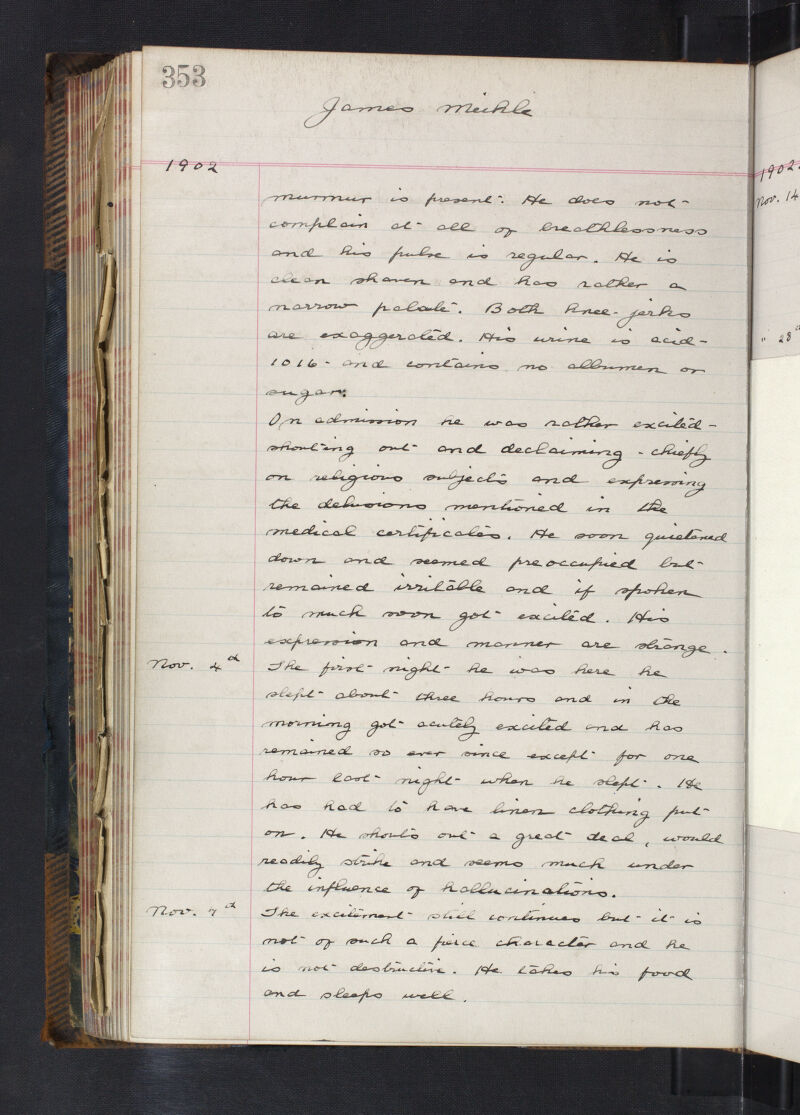 353
James Meikle
1902
murmur is present. He does not
complain at all of breathlessness
and his pulse is regular. He is
clean shaven and has rather a
narrow palate. Both knee-jerks
are exaggerated. His urine is acid -
1016 - and contains no albumen or
sugar.
On admission he was rather excited -
shouting out and declaiming - chiefly
on religious subjects and expressing
the delusions mentioned in the
medical certificates. He soon quietened
down and seemed preoccupied but
remained irritable and if spoken
to much soon got excited. His
expression and manner are strange.
Nov. 4th The first night he was here he
slept about three hours and in the
morning got acutely excited and has
remained so ever since except for one
hour last night when he slept. He
has had to have linen clothing put
on. He shouts out a great deal, would
readily strike and seems much under
the influence of hallucinations.
Nov. 7th The excitement still continues but it is
not of such a fierce character and he
is not destructive. He takes his food
and sleeps well.
1902.
Nov. 14
" 28